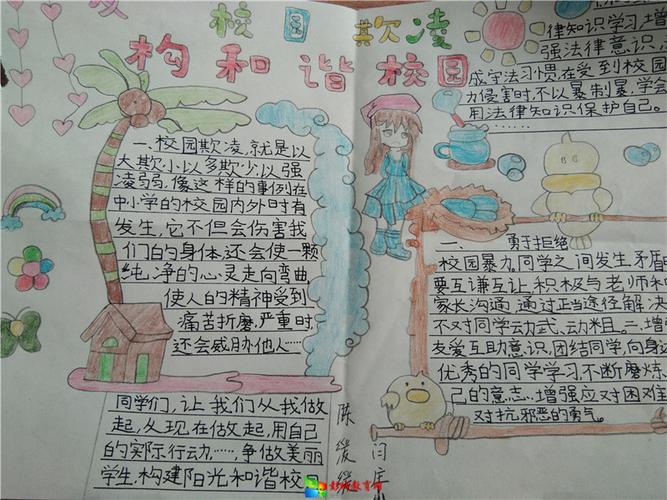 校园欺凌
构和谐校园
一、校园欺凌,就是以
大欺小以多欺少以强
凌弱.像这样的事例在
中小学的校园内外时有
发生,它不但会伤害我
们的身体,还会使一颗
纯净的心灵走向弯曲
使人的精神受到
痛苦折磨,严重时,
还会威胁他人……
同学们,让我们从我做
起,从现在做起,用自己
的实际行动……争做美丽
学生,构建阳光和谐校
律知识学习,增
强法律意识,
成守法习惯,在受到校园
力侵害时,不以暴制暴,学会
用法律知识保护自己。
二、勇于拒绝
校园暴力。同学之间发生矛盾
要互谦互让,积极与老师和
家长沟通,通过正当途径解决
不对同学动武、动粗.三.增
友爱互助意识,团结同学,向身边
优秀的同学学习,不断磨炼
己的意志、增强应对困难
对抗邪恶的勇气。
陈